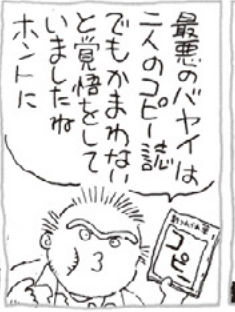 最悪のバヤイは
二人のコピー誌
でもかまわない
と覚悟をして
いましたね
ホントに
コピー